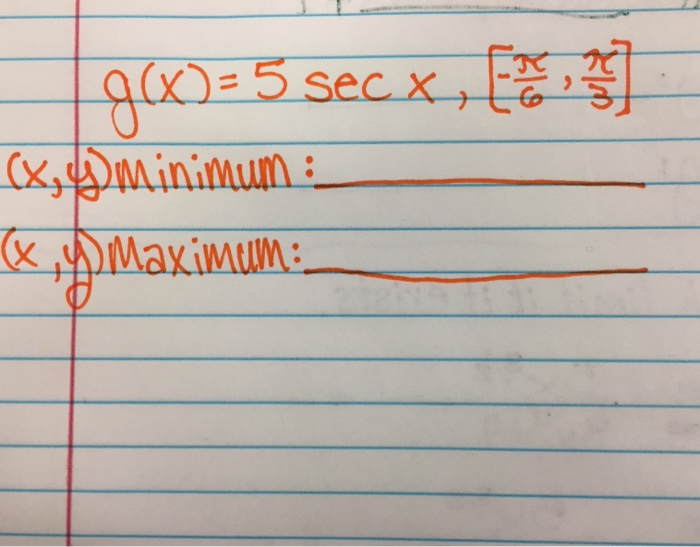 g(x) = 5 sec x, [-π/6, π/3]
(x,y) minimum:
(x,y) maximum: